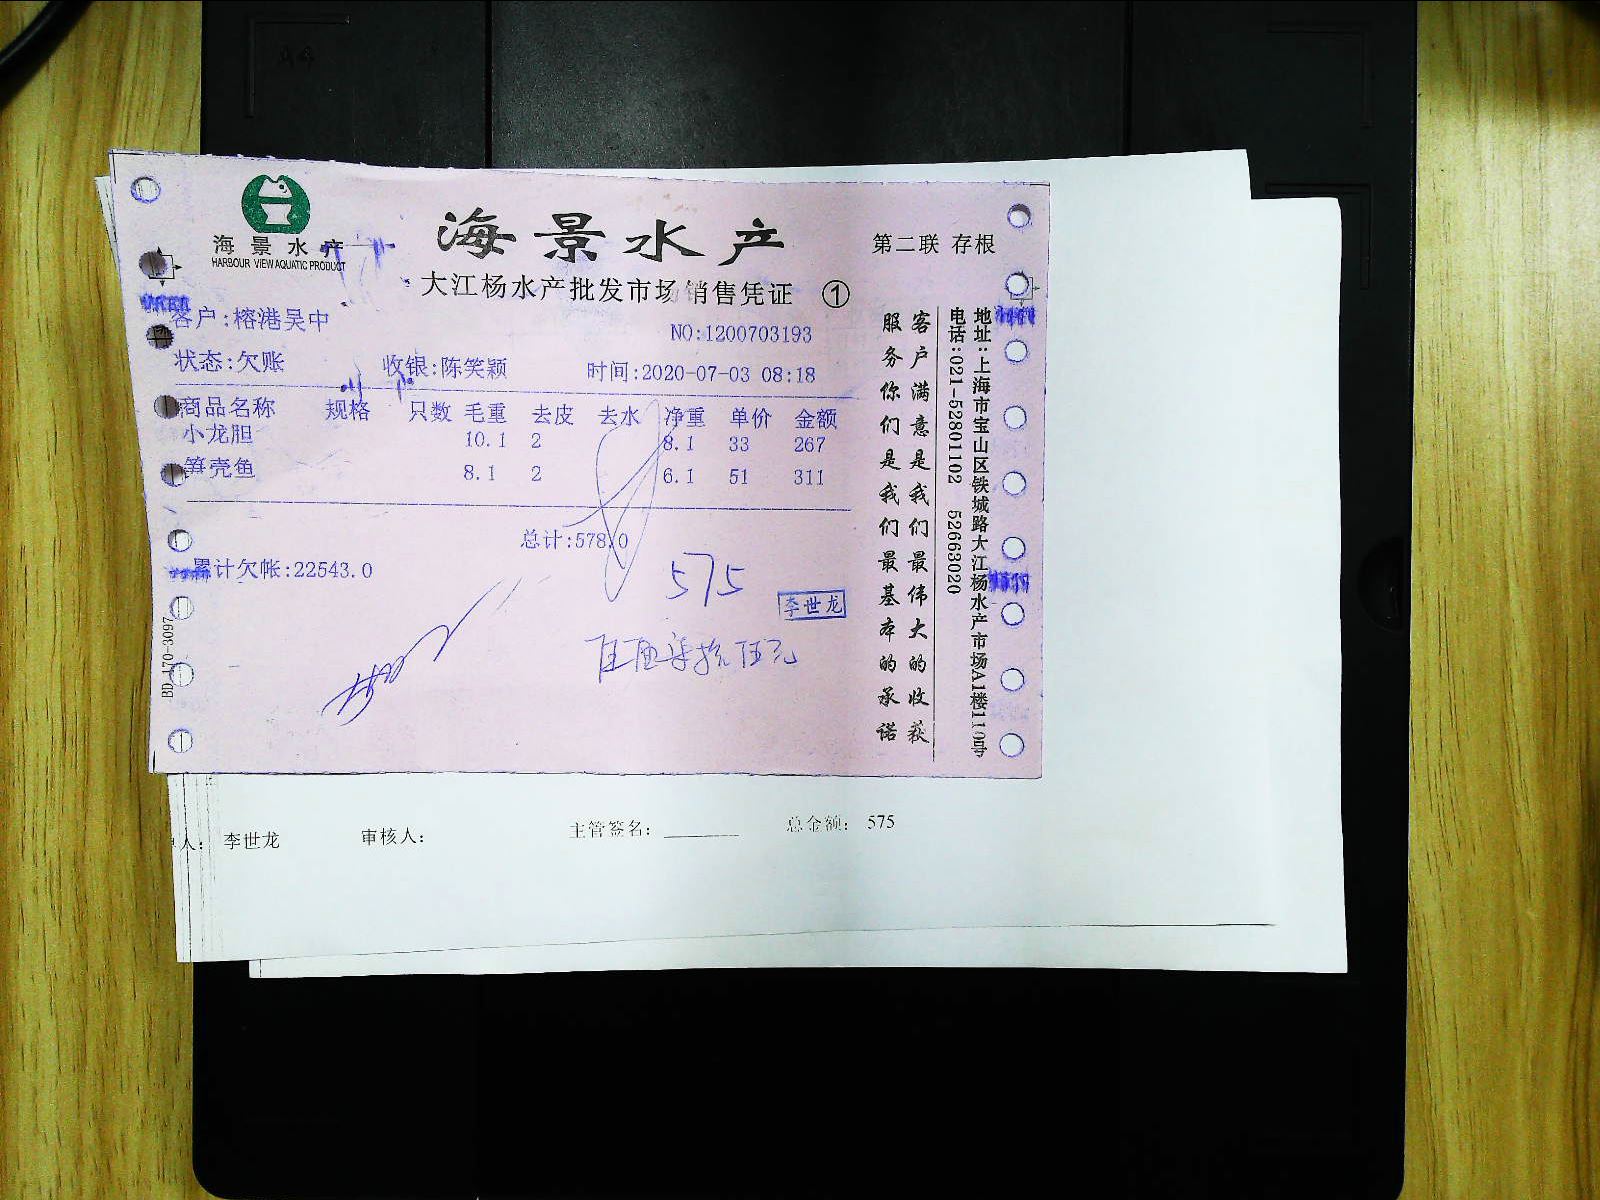 A4
海景水产
HARBOUR VIEW AQUATIC PRODUCT
海景水产
第二联 存根
大江杨水产批发市场销售凭证 ①
客户:榕港吴中
NO:1200703193
状态:欠账 收银:陈笑颖 时间:2020-07-03 08:18
商品名称 规格 只数 毛重 去皮 去水 净重 单价 金额
小龙胆 10.1 2 8.1 33 267
笋壳鱼 8.1 2 6.1 51 311
总计:578.0
累计欠帐:22543.0
575
李世龙
伍佰柒拾伍元
BD 170-3097
客户满意是我们最伟大的收获
服务你们是我们最基本的承诺
地址:上海市宝山区铁城路大江杨水产市场A1楼110号
电话:021-52801102 52663020
人: 李世龙 审核人: 主管签名: 总金额: 575